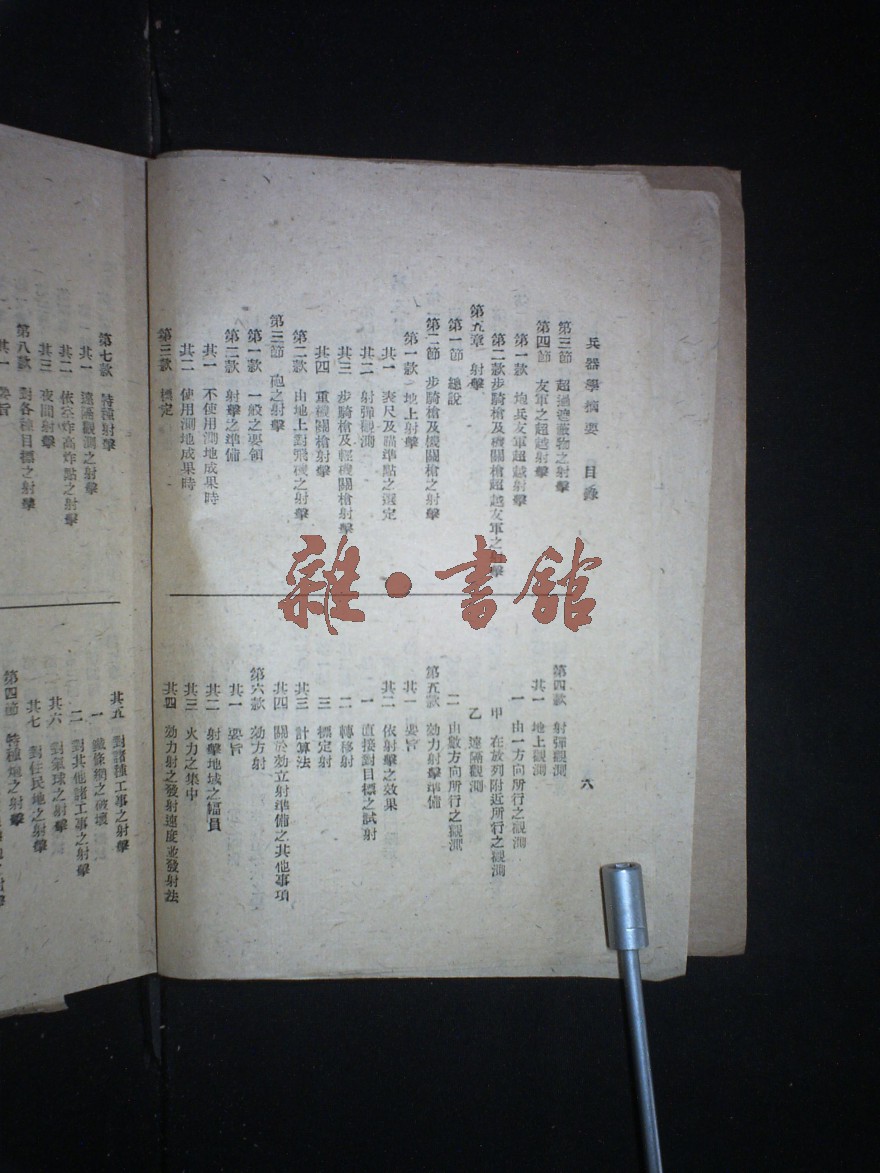 兵器學摘要 目錄
第三節 超過遮蔽物之射擊
第四節 友軍之超越射擊
第一款 炮兵友軍超越射擊
第二款步騎槍及機關槍超越友軍之射擊
第五章 射擊
第一節 總說
第二節 步騎槍及機關槍之射擊
第一款 地上射擊
其一 表尺及瞄準點之選定
其二 射彈觀測
其三 步騎槍及輕機關槍射擊
其四 重機關槍射擊
第二款 由地上對飛機之射擊
第三節 砲之射擊
第一款 一般之要領
第二款 射擊之準備
其一 不使用測地成果時
其二 使用測地成果時
第三款 標定
六
第四款 射彈觀測
其一 地上觀測
一 由一方向所行之觀測
甲 在放列附近所行之觀測
乙 遠隔觀測
二 由數方向所行之觀測
第五款 効力射擊準備
其一 要旨
其二 依射擊之效果
一 直接對目標之試射
二 轉移射
三 標定射
其三 計算法
其四 關於効立射準備之其他事項
第六款 効方射
其一 要旨
其二 射擊地域之幅員
其三 火力之集中
其四 効力射之發射速度並發射法
第七款 特種射擊
其一 遠隔觀測之射擊
其二 依空炸高炸點之射擊
其三 夜間射擊
第八款 對各種目標之射擊
其一 要旨
其五 對諸種工事之射擊
一 鐵條網之破壞
二 對其他諸工事之射擊
其六 對氣球之射擊
其七 對住民地之射擊
第四節 特種炮之射擊
雜·書館